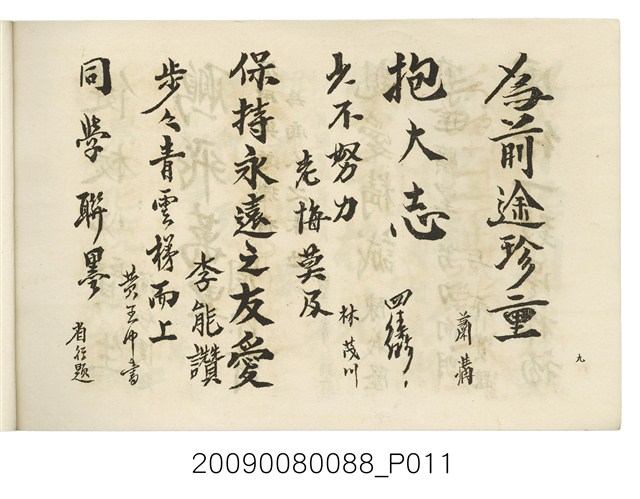 為前途珍重
蕭
抱大志
少不努力
老悔莫及
林茂川
保持永遠之友愛
李能讚
步々青雲梯而上
黃玉印書
同學聯墨
省行題
九
20090080088_P011